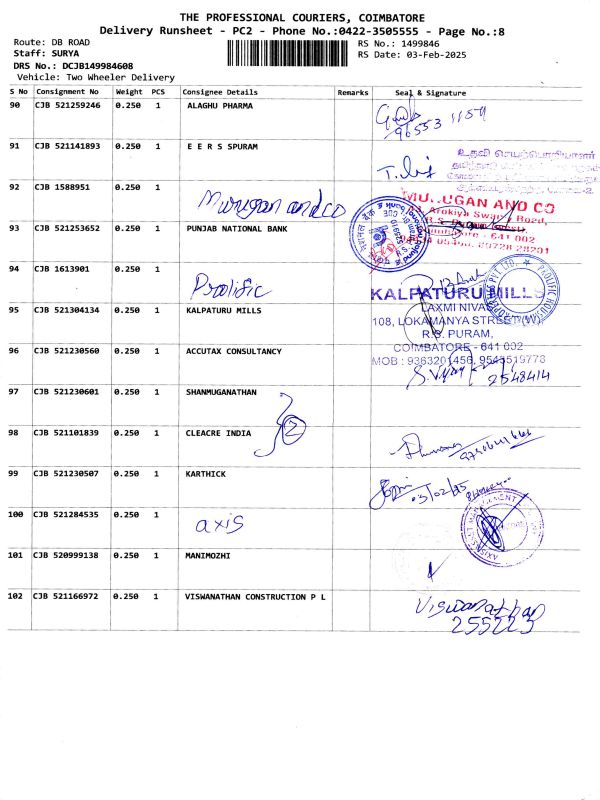 THE PROFESSIONAL COURIERS, COIMBATORE
Delivery Runsheet - PC2 - Phone No.:0422-3505555 - Page No.:8
Route: DB ROAD
RS No.: 1499846
Staff: SURYA
RS Date: 03-Feb-2025
DRS No.: DCJB149984608
Vehicle: Two Wheeler Delivery
S No Consignment No Weight PCS Consignee Details Remarks Seal & Signature
90 CJB 521259246 0.250 1 ALAGHU PHARMA
91 CJB 521141893 0.250 1 E E R S SPURAM
உதவி செயற்பொறியாளர்
92 CJB 1588951 0.250 1 Murugan and co
MURUGAN AND CO
93 CJB 521253652 0.250 1 PUNJAB NATIONAL BANK
94 CJB 1613901 0.250 1 Prolific
KALPATURU MILLS
LAXMI NIVAS
95 CJB 521304134 0.250 1 KALPATURU MILLS
108, LOKAMANYA STREET (W),
R.S. PURAM,
COIMBATORE - 641 002
96 CJB 521230560 0.250 1 ACCUTAX CONSULTANCY
MOB : 9363201456, 9543519773
2548414
97 CJB 521230601 0.250 1 SHANMUGANATHAN
2
98 CJB 521101839 0.250 1 CLEACRE INDIA
99 CJB 521230507 0.250 1 KARTHICK
03/02/25
100 CJB 521284535 0.250 1 axis
101 CJB 520999138 0.250 1 MANIMOZHI
102 CJB 521166972 0.250 1 VISWANATHAN CONSTRUCTION P L
Viswanathan
255223